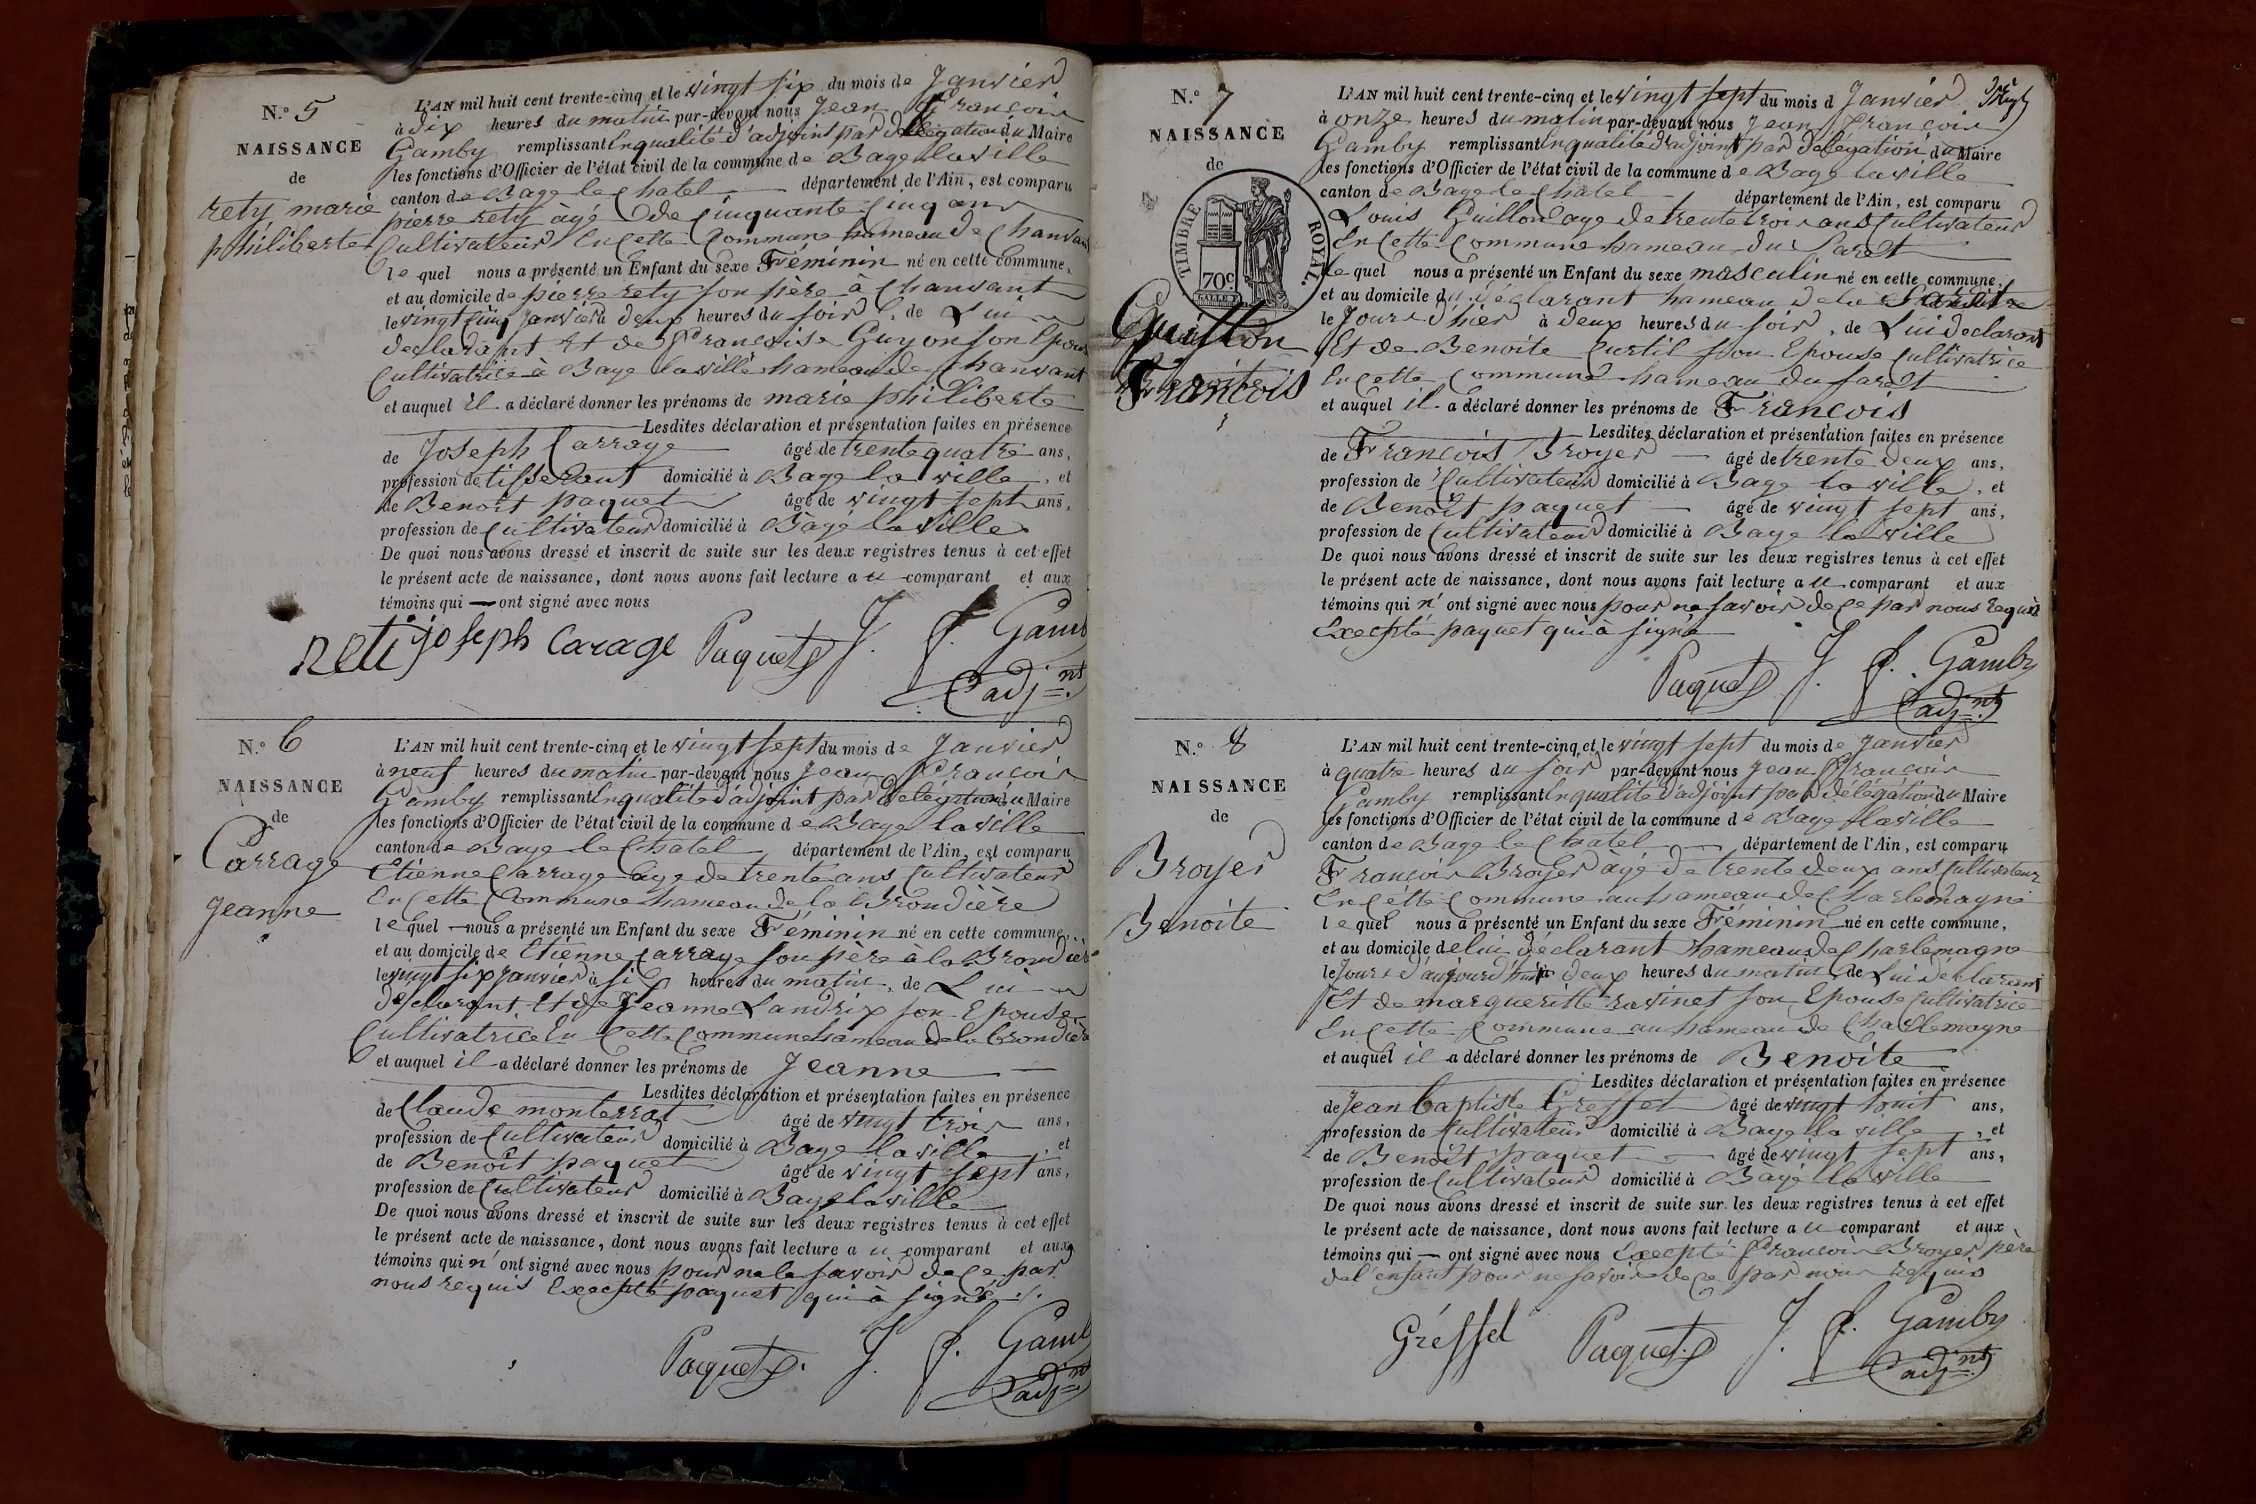 N.° 5
NAISSANCE
de
rety marie
philiberte
L'AN mil huit cent trente-cinq et le vingt six du mois de Janvier
à dix heures du matin par-devant nous Jean François
Gamby remplissant en qualité d'adjoint par délégation du Maire
les fonctions d'Officier de l'état civil de la commune de Bage la ville
canton de Bage le Chatel département de l'Ain, est comparu
pierre rety âgé de Cinquante Cinq ans
Cultivateur En Cette Commune hameau de Chanvant
le quel nous a présenté un Enfant du sexe Féminin né en cette commune,
et au domicile de pierre rety son père à Chanvant
le vingt Cinq Janvier à deux heures du soir, de Lui
declarant et de Françoise Guyon son Epouse
Cultivatrice à Bage la ville hameau de Chanvant
et auquel il a déclaré donner les prénoms de marie philiberte
Lesdites déclaration et présentation faites en présence
de Joseph Carrage âgé de trente quatre ans,
profession de tisserant domicilié à Bage la ville, et
de Benoit paquet âgé de vingt sept ans,
profession de Cultivateur domicilié à Bagé la Ville
De quoi nous avons dressé et inscrit de suite sur les deux registres tenus à cet effet
le présent acte de naissance, dont nous avons fait lecture au comparant et aux
témoins qui — ont signé avec nous
reti joseph carage Paquet J. f. Gamb
adj.nt
N.° 6
NAISSANCE
de
Carrage
Jeanne
L'AN mil huit cent trente-cinq et le vingt sept du mois de Janvier
à neuf heures du matin par-devant nous Jean François
Gamby remplissant En qualité d'adjoint par Délégation du Maire
les fonctions d'Officier de l'état civil de la commune de Bage la ville
canton de Bage le Chatel département de l'Ain, est comparu
Etienne Carrage âge de trente ans Cultivateur
En Cette Commune hameau de la Brondière
le quel — nous a présenté un Enfant du sexe Féminin né en cette commune,
et au domicile de Etienne Carrage son père à la Brondière
le vingt six janvier à six heures du matin, de Lui
declarant Et de Jeanne Landrix son Epouse
Cultivatrice En Cette Commune hameau de la brondière
et auquel il a déclaré donner les prénoms de Jeanne
Lesdites déclaration et présentation faites en présence
de Claude monterrat âgé de vingt trois ans,
profession de Cultivateur domicilié à Bage la ville, et
de Benoit paquet âgé de vingt sept ans,
profession de Cultivateur domicilié à Bage la ville
De quoi nous avons dressé et inscrit de suite sur les deux registres tenus à cet effet
le présent acte de naissance, dont nous avons fait lecture au comparant et aux
témoins qui n'ont signé avec nous pour ne le savoir de ce par
nous requis Excepté paquet qui à signé
Paquet. J. f. Gamb
adj.nt
N.° 7
NAISSANCE
de
TIMBRE ROYAL.
70c
Guillon
François
L'AN mil huit cent trente-cinq et le vingt sept du mois d Janvier
à onze heures du matin par-devant nous Jean François
Gamby remplissant En qualité d'adjoint par délégation du Maire
les fonctions d'Officier de l'état civil de la commune de Bage la ville
canton de Bage le Chatel département de l'Ain, est comparu
Louis Guillon âge de trente trois ans Cultivateur
En Cette Commune hameau du Saret
le quel nous a présenté un Enfant du sexe masculin né en cette commune,
et au domicile du déclarant hameau de la
le Jour d'hier à deux heures du soir, de Lui declarant
Et de Benoite Curtil son Epouse Cultivatrice
En Cette Commune hameau du saret
et auquel il a déclaré donner les prénoms de François
Lesdites déclaration et présentation faites en présence
de François Broyer — âgé de trente deux ans,
profession de Cultivateur domicilié à Bage la ville, et
de Benoît paquet — âgé de vingt sept ans,
profession de Cultivateur domicilié à Bage la ville
De quoi nous avons dressé et inscrit de suite sur les deux registres tenus à cet effet
le présent acte de naissance, dont nous avons fait lecture au comparant et aux
témoins qui n'ont signé avec nous pour ne savoir de ce par nous requis
Excepté paquet qui à signé
Paquet J. f. Gamby
adj.nt
N.° 8
NAISSANCE
de
Broyer
Benoite
L'AN mil huit cent trente-cinq et le vingt sept du mois de Janvier
à quatre heures du soir par-devant nous Jean François
Gamby remplissant En qualité d'adjoint par délégation du Maire
les fonctions d'Officier de l'état civil de la commune de Bage la ville
canton de Bage le Chatel département de l'Ain, est comparu
François Broyer âgé de trente deux ans Cultivateur
En Cette Commune au hameau de Charlemagne
le quel nous a présenté un Enfant du sexe Féminin né en cette commune,
et au domicile de lui déclarant hameau de Charlemagne
le Jour d'aujourd'hui à deux heures du matin, de Lui déclarant
Et de margueritte ravinet son Epouse Cultivatrice
En Cette Commune au hameau de Charlemagne
et auquel il a déclaré donner les prénoms de Benoite
Lesdites déclaration et présentation faites en présence
de Jean baptiste Greffet âgé de vingt huit ans,
profession de Cultivateur domicilié à Bage la ville, et
de Benoît paquet âgé de vingt sept ans,
profession de Cultivateur domicilié à Bagé la ville
De quoi nous avons dressé et inscrit de suite sur les deux registres tenus à cet effet
le présent acte de naissance, dont nous avons fait lecture au comparant et aux
témoins qui — ont signé avec nous Excepté François Broyer père
de l'enfant pour ne savoir de ce par nous requis
Gréffet Paquet J. f. Gamby
adj.nt